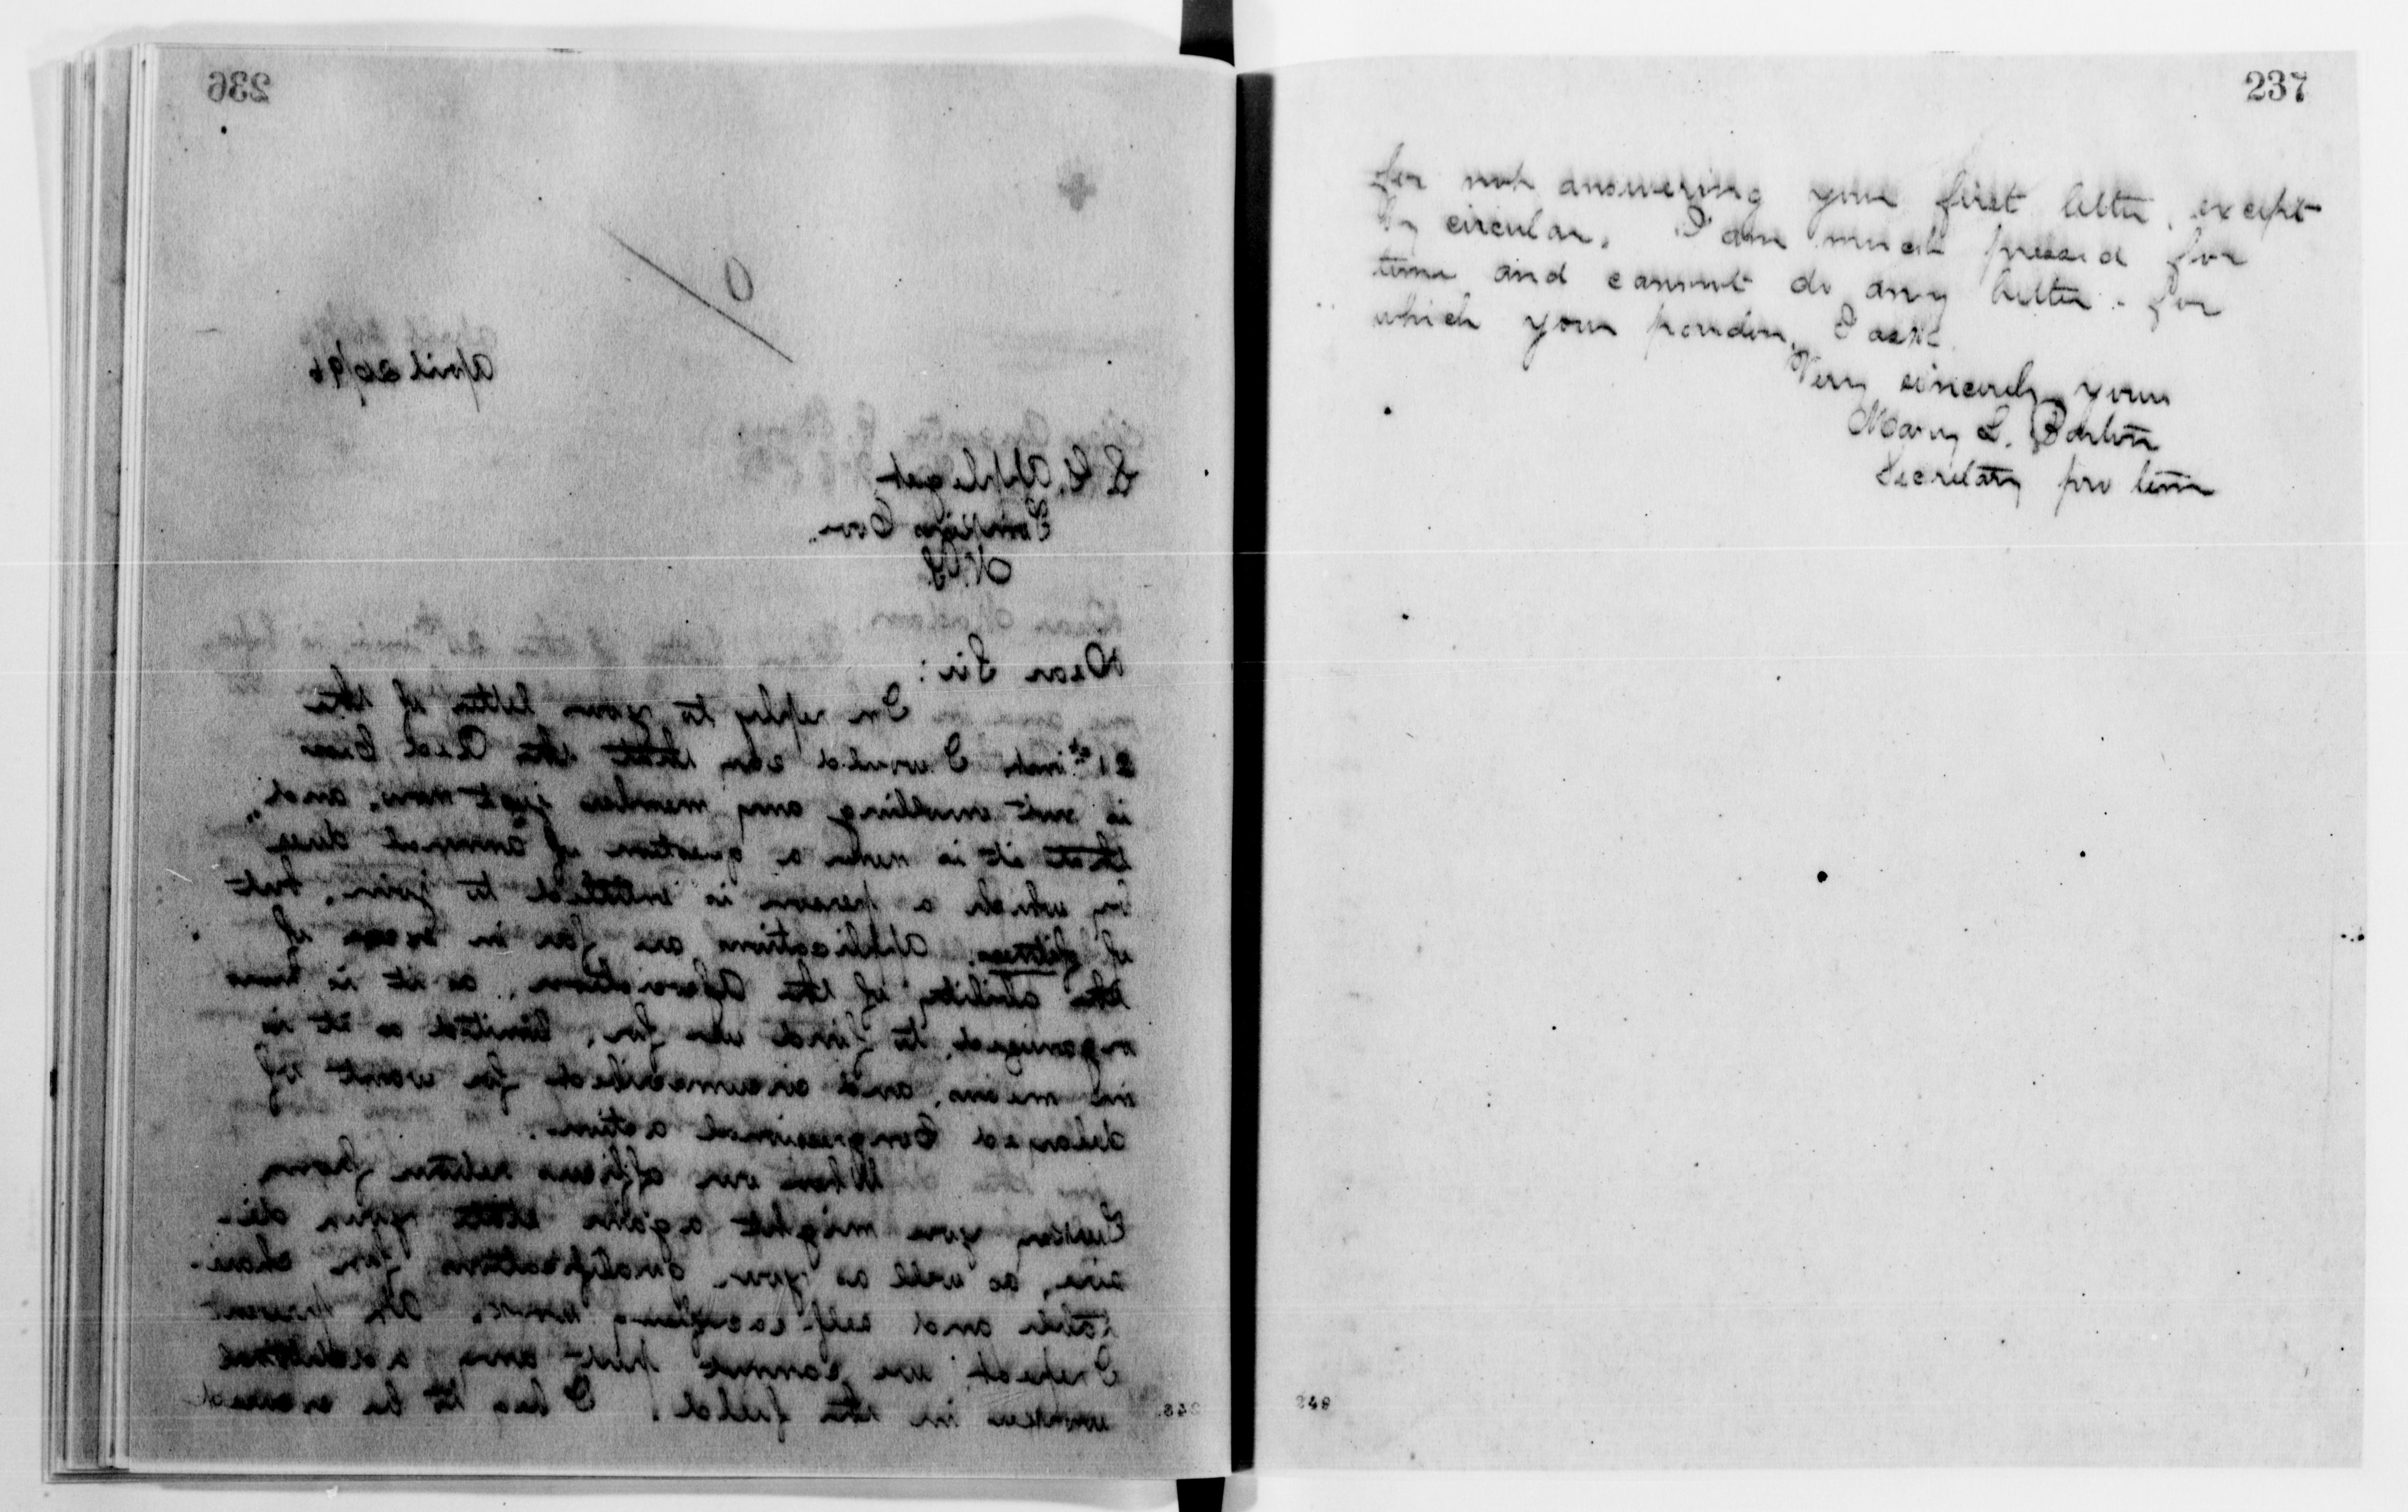 236
April 26/96
S. G. Applegat
Tompkins Cove
N.Y.
Dear Sir:
In reply to your letter of the
21st inst. I would say that the Red Cross
is not enrolling any members just now, and
that it is never a question of "annual dues"
by which a person is entitled to join, but
of fitness. Applications are far in excess of
the ability of the Association, as it is now
organized, to find use for, limited as it is
in means, and circumscribed for want of
delayed Congressional action.
When our officers return from
Turkey you might again state your de-
sire, as well as your qualifications for chari-
table and self-sacrificing work. At present
I repeat, we cannot put any additional
workers in the field. I beg to be excused
248
237
for not answering your first letter, except
by circular. I am much pressed for
time and cannot do any better - for
which your pardon, I ask.
Very sincerely yours
Mary L. Barton
Secretary pro tem
249